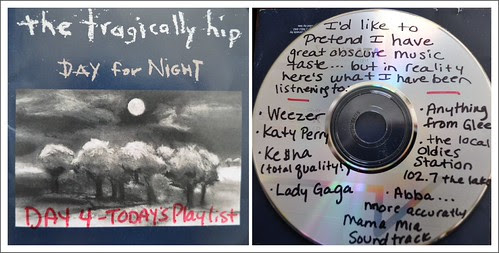 the tragically hip
DAY for NIGHT
DAY 4 - TODAY'S Playlist
I'd like to
Pretend I have
great obscure music
taste... but in reality
here's what I have been
listening to:
· Weezer
· Katy Perry
· Ke$ha
(total quality!)
· Lady Gaga
· Anything
from Glee
· the local
Oldies
Station
102.7 the lake
· Abba...
more accuratly
Mama Mia
Soundtrack